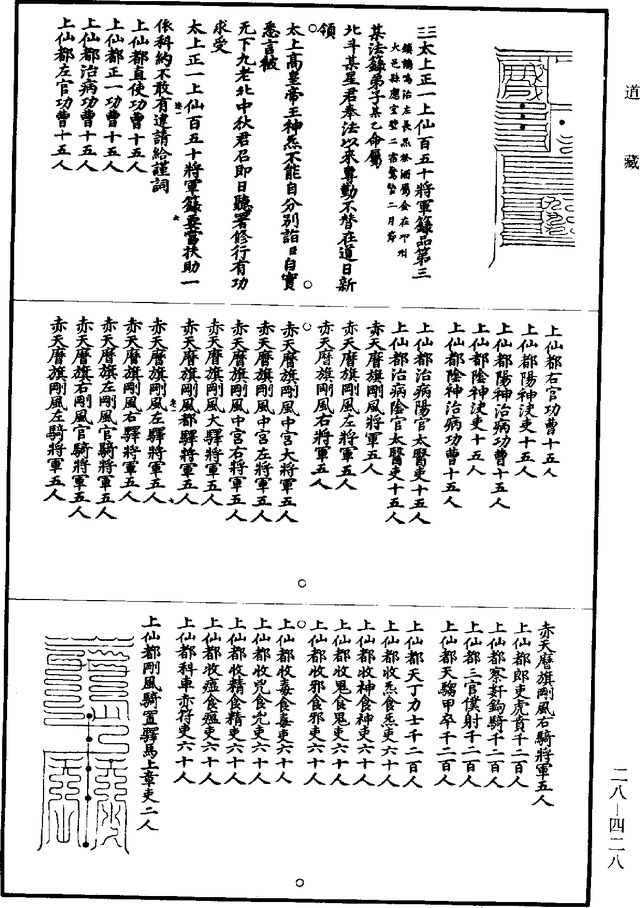 道藏
三三太上正一上仙百五十將軍籙品第三
某法籙弟子某乙命屬
北斗某星君奉法以來專勤不替在道日新
領
太上高皇帝王神炁不能自分別詣日自實
悉言被
无下九老北中秋君召即日聽署修行有功
求受
太上正一上仙百五十將軍籙要當扶助一
依科約不敢有違請給謹詞
上仙都直使功曹十五人
上仙都正一功曹十五人
上仙都治病功曹十五人
上仙都左官功曹十五人
上仙都右官功曹十五人
上仙都陽神決吏十五人
上仙都陽神治病功曹十五人
上仙都陰神決吏十五人
上仙都陰神治病功曹十五人
上仙都治病陽官太醫吏十五人
上仙都治病陰官太醫吏十五人
赤天麿旗剛風將軍五人
赤天麿旗剛風左將軍五人
赤天麿旗剛風右將軍五人
赤天麿旗剛風中宮大將軍五人
赤天麿旗剛風中宮左將軍五人
赤天麿旗剛風中宮右將軍五人
赤天麿旗剛風大驛將軍五人
赤天麿旗剛風都驛將軍五人
赤天麿旗剛風左驛將軍五人
赤天麿旗剛風右驛將軍五人
赤天麿旗左剛風官騎將軍五人
赤天麿旗右剛風官騎將軍五人
赤天麿旗剛風左騎將軍五人
赤天麿旗剛風右騎將軍五人
上仙都郎吏虎賁千二百人
上仙都察奸鉤騎千二百人
上仙都三官僕射千二百人
上仙都天騶甲卒千二百人
上仙都天丁力士千二百人
上仙都收炁食炁吏六十人
上仙都收神食神吏六十人
上仙都收鬼食鬼吏六十人
上仙都收邪食邪吏六十人
上仙都收毒食毒吏六十人
上仙都收咒食咒吏六十人
上仙都收精食精吏六十人
上仙都收瘟食瘟吏六十人
上仙都科車赤符吏六十人
上仙都剛風騎置驛馬上章吏二人
二八—四二八